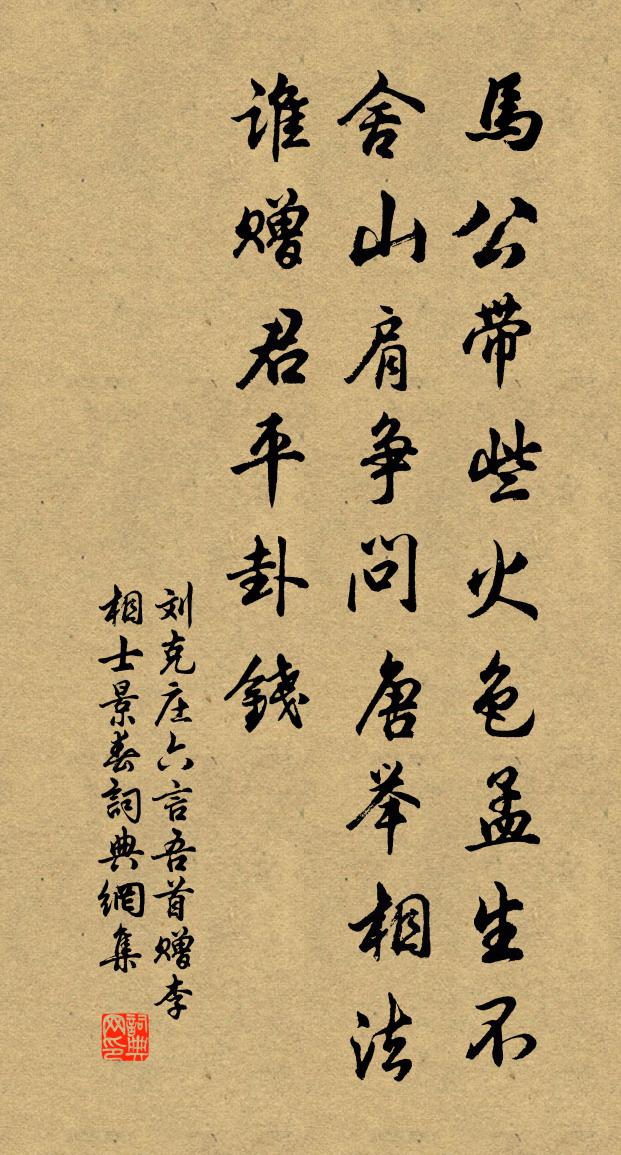 馬公帶些火色孟生不
舍山肩争問唐举相法
誰赠君平卦錢
刘克庄六言吾首赠李
相士景春詞典網集
詞典网印